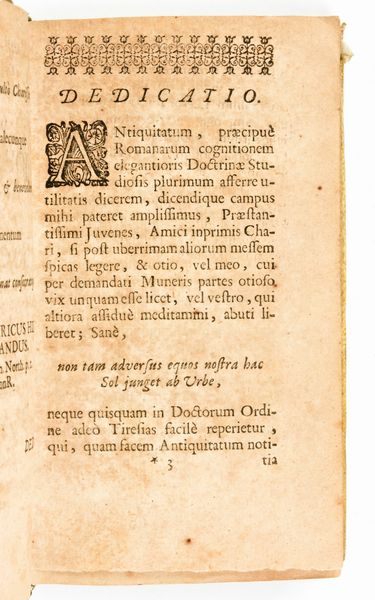 DEDICATIO.
ANtiquitatum, præcipuè
Romanarum cognitionem
elegantioris Doctrinæ Stu-
diosis plurimum afferre u-
tilitatis dicerem, dicendique campus
mihi pateret amplissimus, Præstan-
tissimi Juvenes, Amici inprimis Cha-
ri, si post uberrimam aliorum messem
spicas legere, & otio, vel meo, cui
per demandati Muneris partes otioso
vix unquam esse licet, vel vestro, qui
altiora assiduè meditamini, abuti li-
beret; Sanè,
non tam adversus equos nostra hac
Sol junget ab Urbe,
neque quisquam in Doctorum Ordi-
ne adeò Tiresias facilè reperietur,
qui, quam facem Antiquitatum noti-
* 3 tia
& 
mentum
ANDUS.
North.
DED